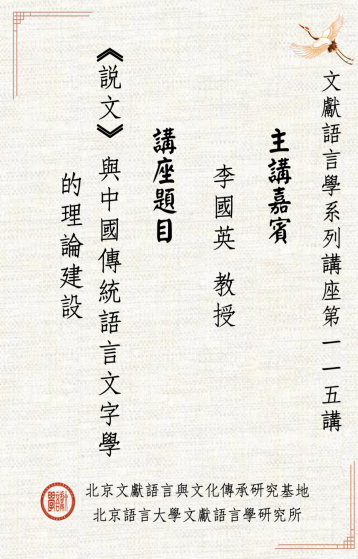 文獻語言學系列講座第一一五講
主講嘉賓
李國英 教授
講座題目
《説文》與中國傳統語言文字學
的理論建設
北京文獻語言與文化傳承研究基地
北京語言大學文獻語言學研究所